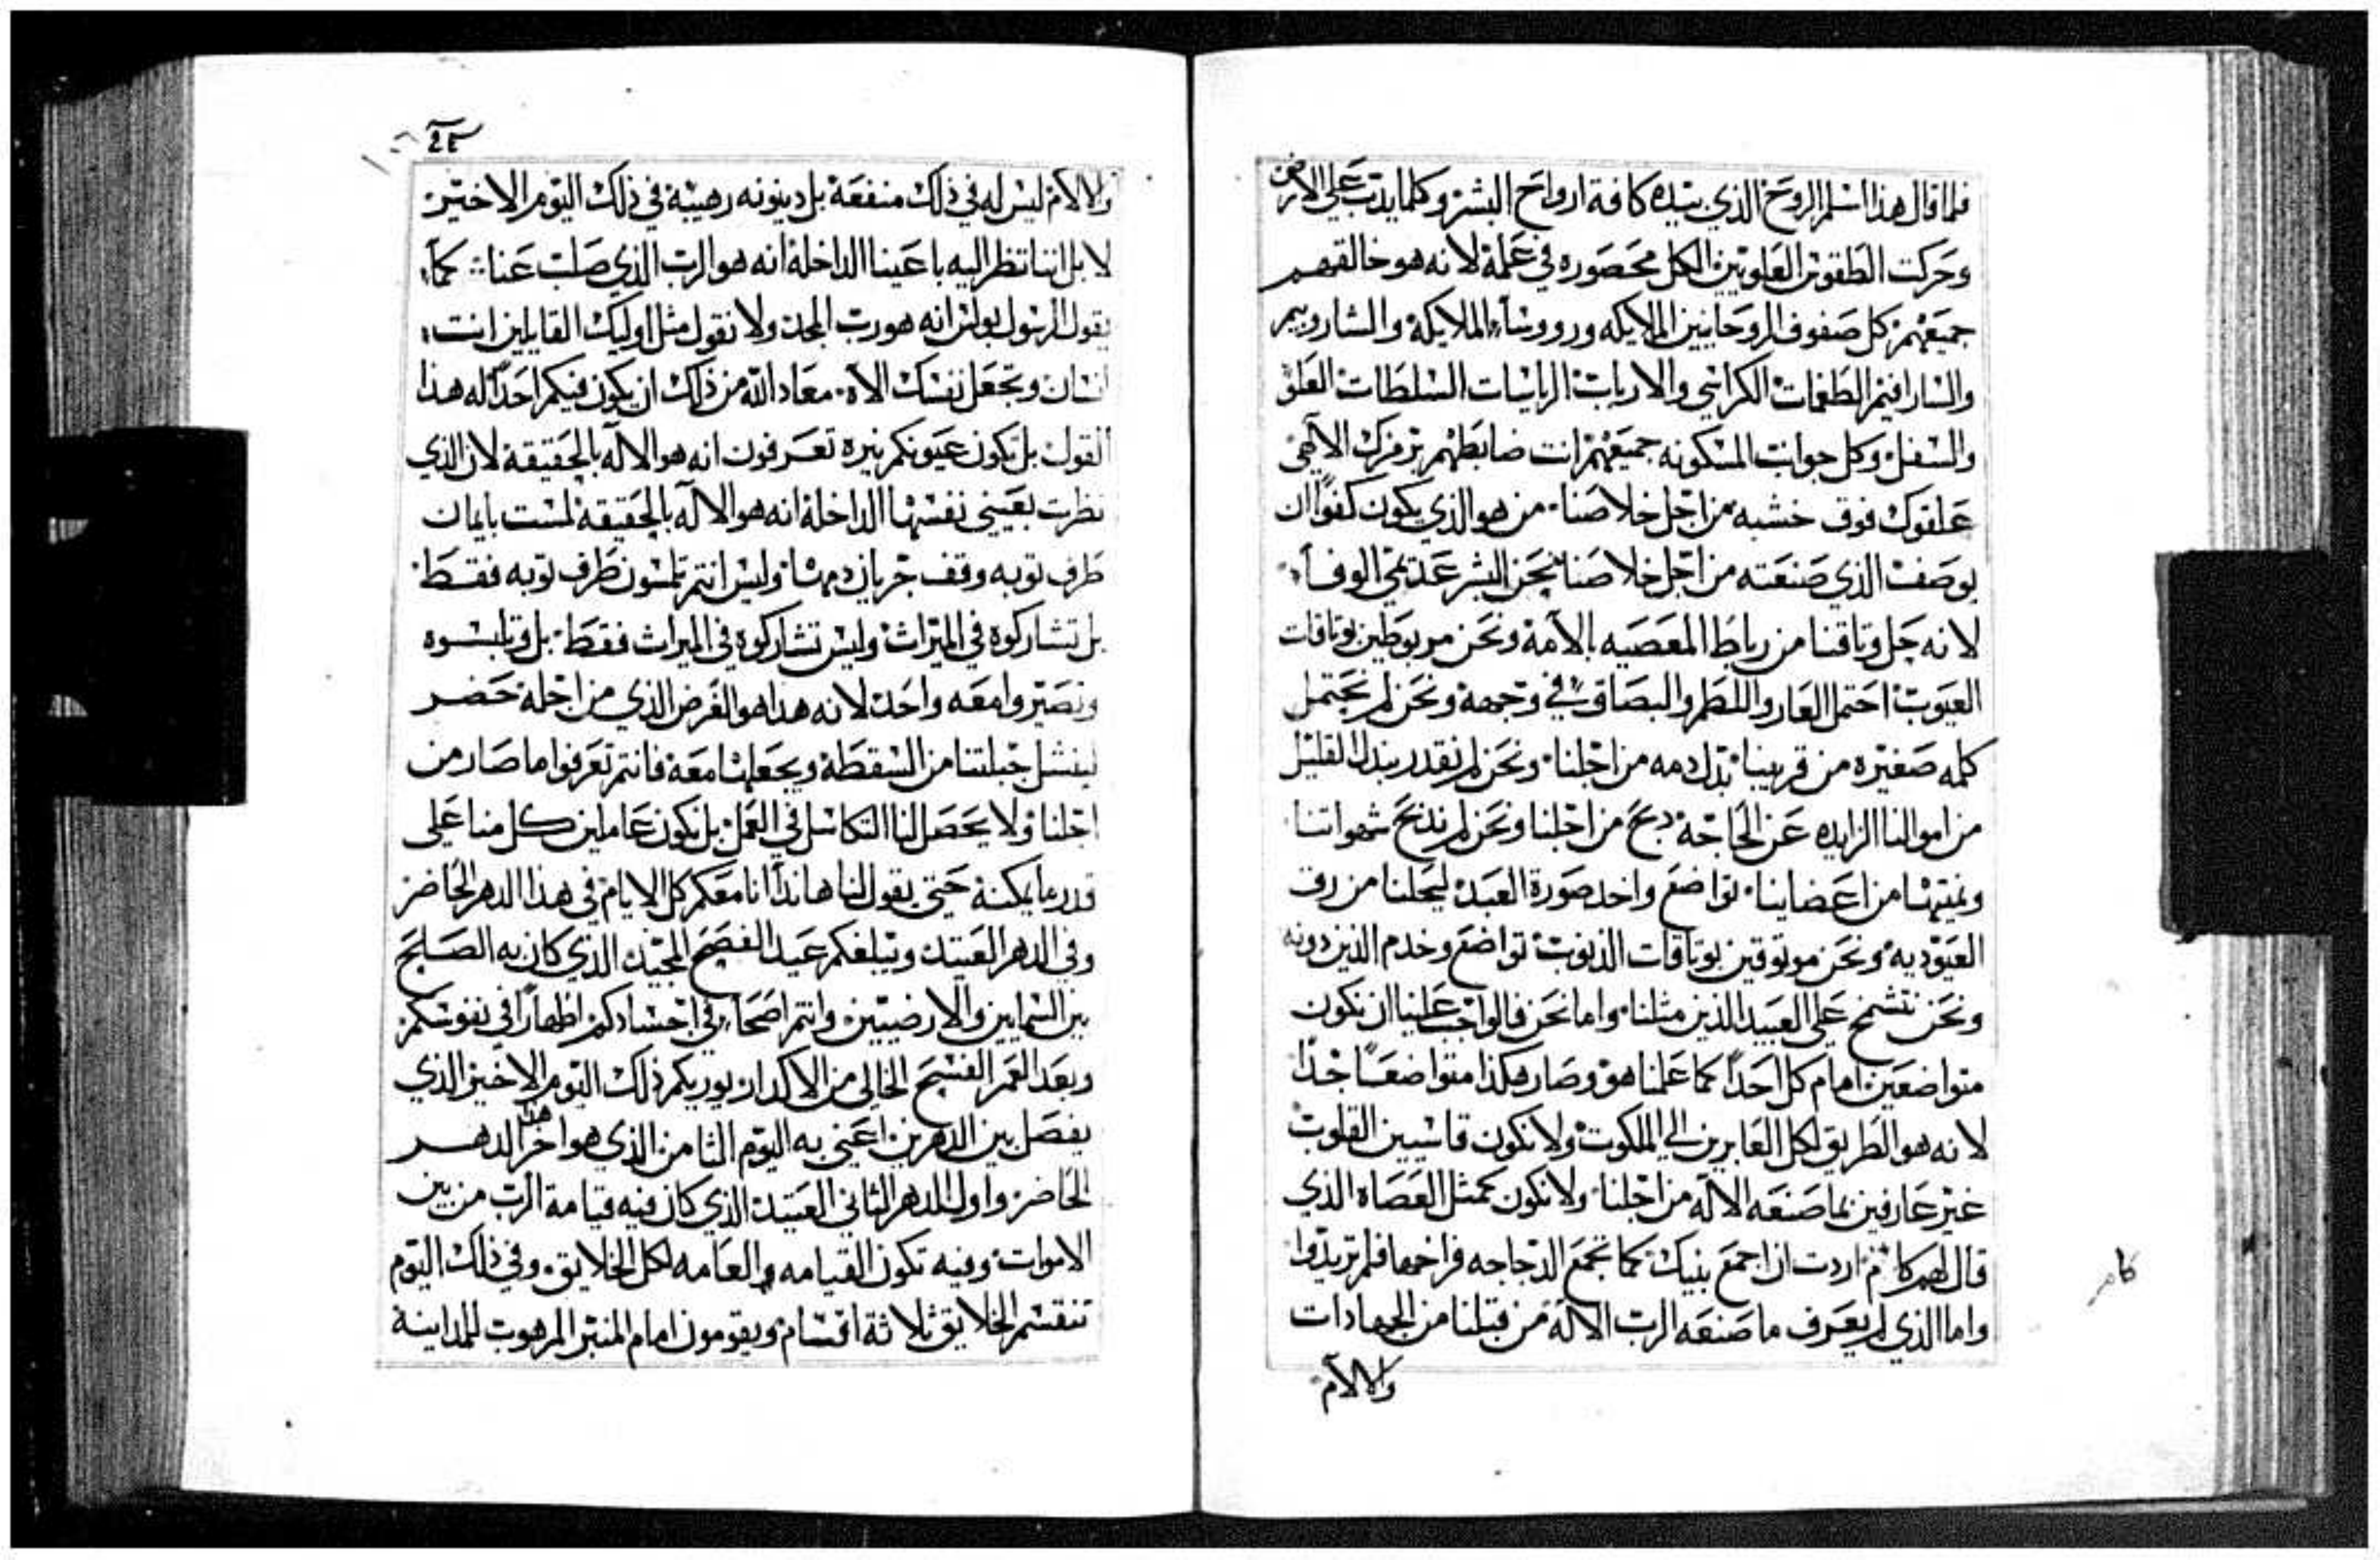 فلما قال هذا اسلم الروح الذي بيده كافة ارواح البشر وكلما يدب علي الارض
وحركت الطقوس العلويين الكل محصوره في عمله لانه هو خالقهم
جميعهم كل صفوف الروحانيين الملايكه وروسآء الملايكة والشاروبيم
والسارافيم الطغمات الكراسي والارباب الرياسات السلطات العلو
والسفل وكل جوانب المسكونه جميعهم انت ضابطهم برمزك الالاهي
علقوك فوق خشبه من اجل خلاصنا من هو الذي يكون كفوًا ان
يوصف الذي صنعته من اجل خلاصنا نحن البشر عديمي الوفآء
لانه حل وتاقنا من رباط المعصيه بالامه ونحن مربوطين بوتاقات
العيوب احتمل العار واللطم والبصاق في وجهه ونحن لم نحتمل
كلمه صغيره من قريبنا بدل دمه من اجلنا ونحن لم نقدر نبدل القليل
من اموالنا الزايده عن الحاجه دبح من اجلنا ونحن لم ندبح شهواتنا
ونميتها من اعضاينا تواضع واخد صورة العبد ليحلنا من رق
العبوديه ونحن موتوقين بوتاقات الذنوب تواضع وخدم الذين دونه
ونحن نتشمخ علي العبيد الذين مثلنا واما نحن فالواجب علينا ان نكون
متواضعين امام كل احدًا كما علمنا هو وصار هكذا متواضعًا جدًا
لانه هو الطريق لكل العابرين الي الملكوت ولا نكون قاسيين القلوب
غير عارفين بما صنعه الالآه من اجلنا ولا نكون كمثل العصاه الذي
قال لهم كم اردت ان اجمع بنيك كما تجمع الدجاجه فراخها فلم تريدوا
واما الذي لم يعرف ما صنعه الرب الالآه من قبلنا من الجهادات
والالآم
كام
والالام ليس له في ذلك منفعة بل دينونه رهيبة في ذلك اليوم الاخير
لا بل اننا ننظر اليه باعيننا الداخلة انه هو الرب الذي صلب عنا كما
يقول الرسول بولس انه هو رب المجد ولا نقول مثل اوليك القايلين انت
انسان وتجعل نفسك الاه معاد الله من ذلك ان يكون فيكم احدًا له هذا
القول بل تكون عيونكم نيره تعرفون انه هو الالآه بالحقيقة لان الذي
نظرت بعيني نفسها الداخلة انه هو الالآه بالحقيقة لمست بايمان
طرف توبه وقف جريان دمها وليس انتم تلمسون طرف توبه فقط
بل تشاركوه في الميراث وليس تشاركوه في الميراث فقط بل وتلبسوه
وتصيروا معه واحد لانه هذا هو الغرض الذي من اجله حضر
لينشل جبلتنا من السقطة ويجعلها معه فانتم تعرفوا ما صار من
اجلنا ولا يحصل لنا التكاسل في العمل بل نكون عاملين كل منا على
قدر ما يمكنه حتي يقول لنا هانذا انا معكم كل الايام في هذا الدهر الحاضر
وفي الدهر العتيد ويبلغكم عيد الفصح المجيد الذي كان به الصلح
بين السمايين والارضيين وانتم اصحآء في اجسادكم اطهارًا في نفوسكم
وبعد العمر الفسيح الخالي من الاكدار يوريكم ذلك اليوم الاخير الذي
يفصل بين الدهرين اعني به اليوم الثامن الذي هو اخر هذا الدهر
الحاضر واول الدهر الثاني العتيد الذي كان فيه قيامة الرب من بين
الاموات وفيه تكون القيامه والعامه لكل الخلايق وفي ذلك اليوم
تنقسم الخلايق ثلاثة اقسام ويقومون امام المنبر المرهوب للمداينة